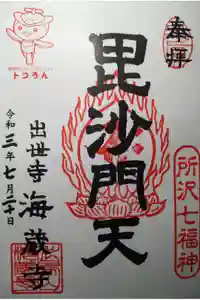 奉拝
毘沙門天
所沢七福神
トコろん
出世寺 海蔵寺
令和三年七月二十日